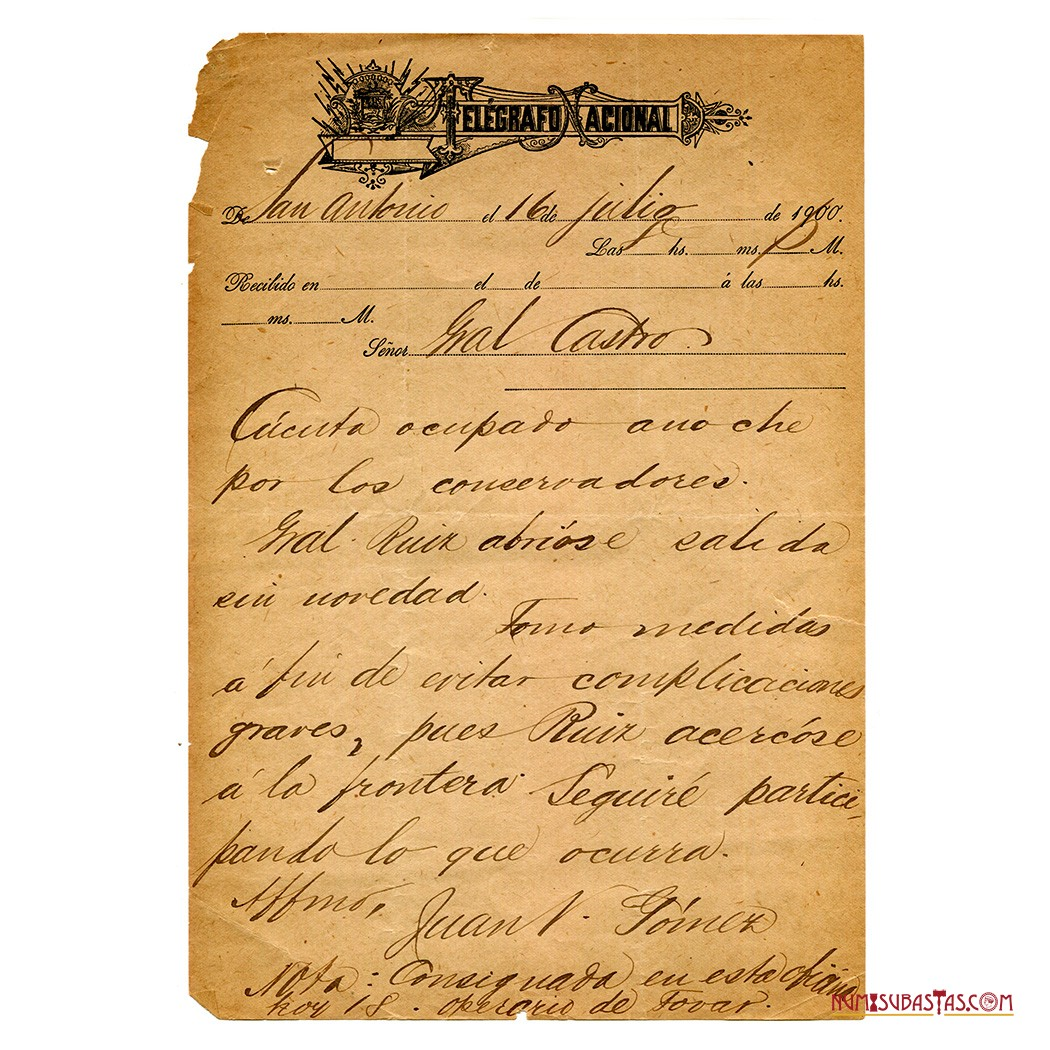 TELÉGRAFO NACIONAL
De San Antonio el 16 de julio de 1900.
Las hs. ms. P M.
Recibido en el de á las hs.
ms. M.
Señor Gral Castro
Cúcuta ocupado anoche
por los conservadores.
Gral. Ruiz abrióse salida
sin novedad.
Tomo medidas
á fin de evitar complicaciones
graves, pues Ruiz acercóse
á la frontera. Seguiré partici-
pando lo que ocurra.
Affmo,
Juan V. Gómez
Nota: Consignada en esta oficina
hoy 18. operario de Tovar.
NUMISUBASTAS.COM